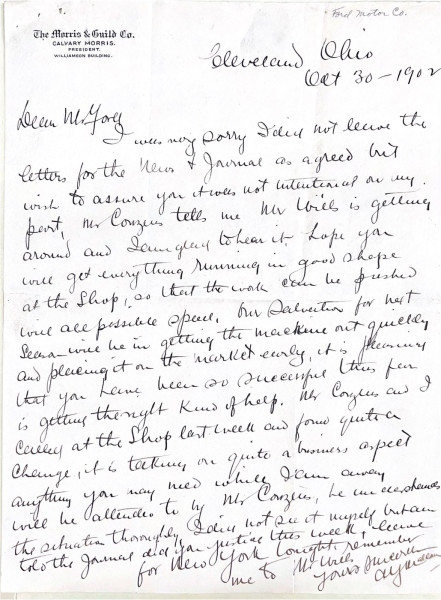 Ford Motor Co.
The Morris & Guild Co.
CALVARY MORRIS.
PRESIDENT.
WILLIAMSON BUILDING.
Cleveland Ohio
Oct 30-1902
Dear Mr Ford
I was very sorry I did not leave the
letters for the News & Journal as agreed but
wish to assure you it was not intentional on my
part, Mr Couzens tells me Mr Wills is getting
around and I am glad to hear it, hope you
will get everything running in good shape
at the Shop, so that the work can be pushed
will all possible speed. Our salvation for next
Season will be in getting the machine out quickly
and placing it on the market early, it is pleasing
that you have been so successful thus far
is getting the right kind of help. Mr Couzens and I
called at the Shop last week and found quite a
change, it is taking on quite a business aspect
anything you may need while I am away
will be attended to by Mr Couzens, he understands
the situation thoroughly, I did not see it myself but am
told the Journal did you justice this week, leave
for New York tonight, remember
me to Mr Wills
Yours Sincerely